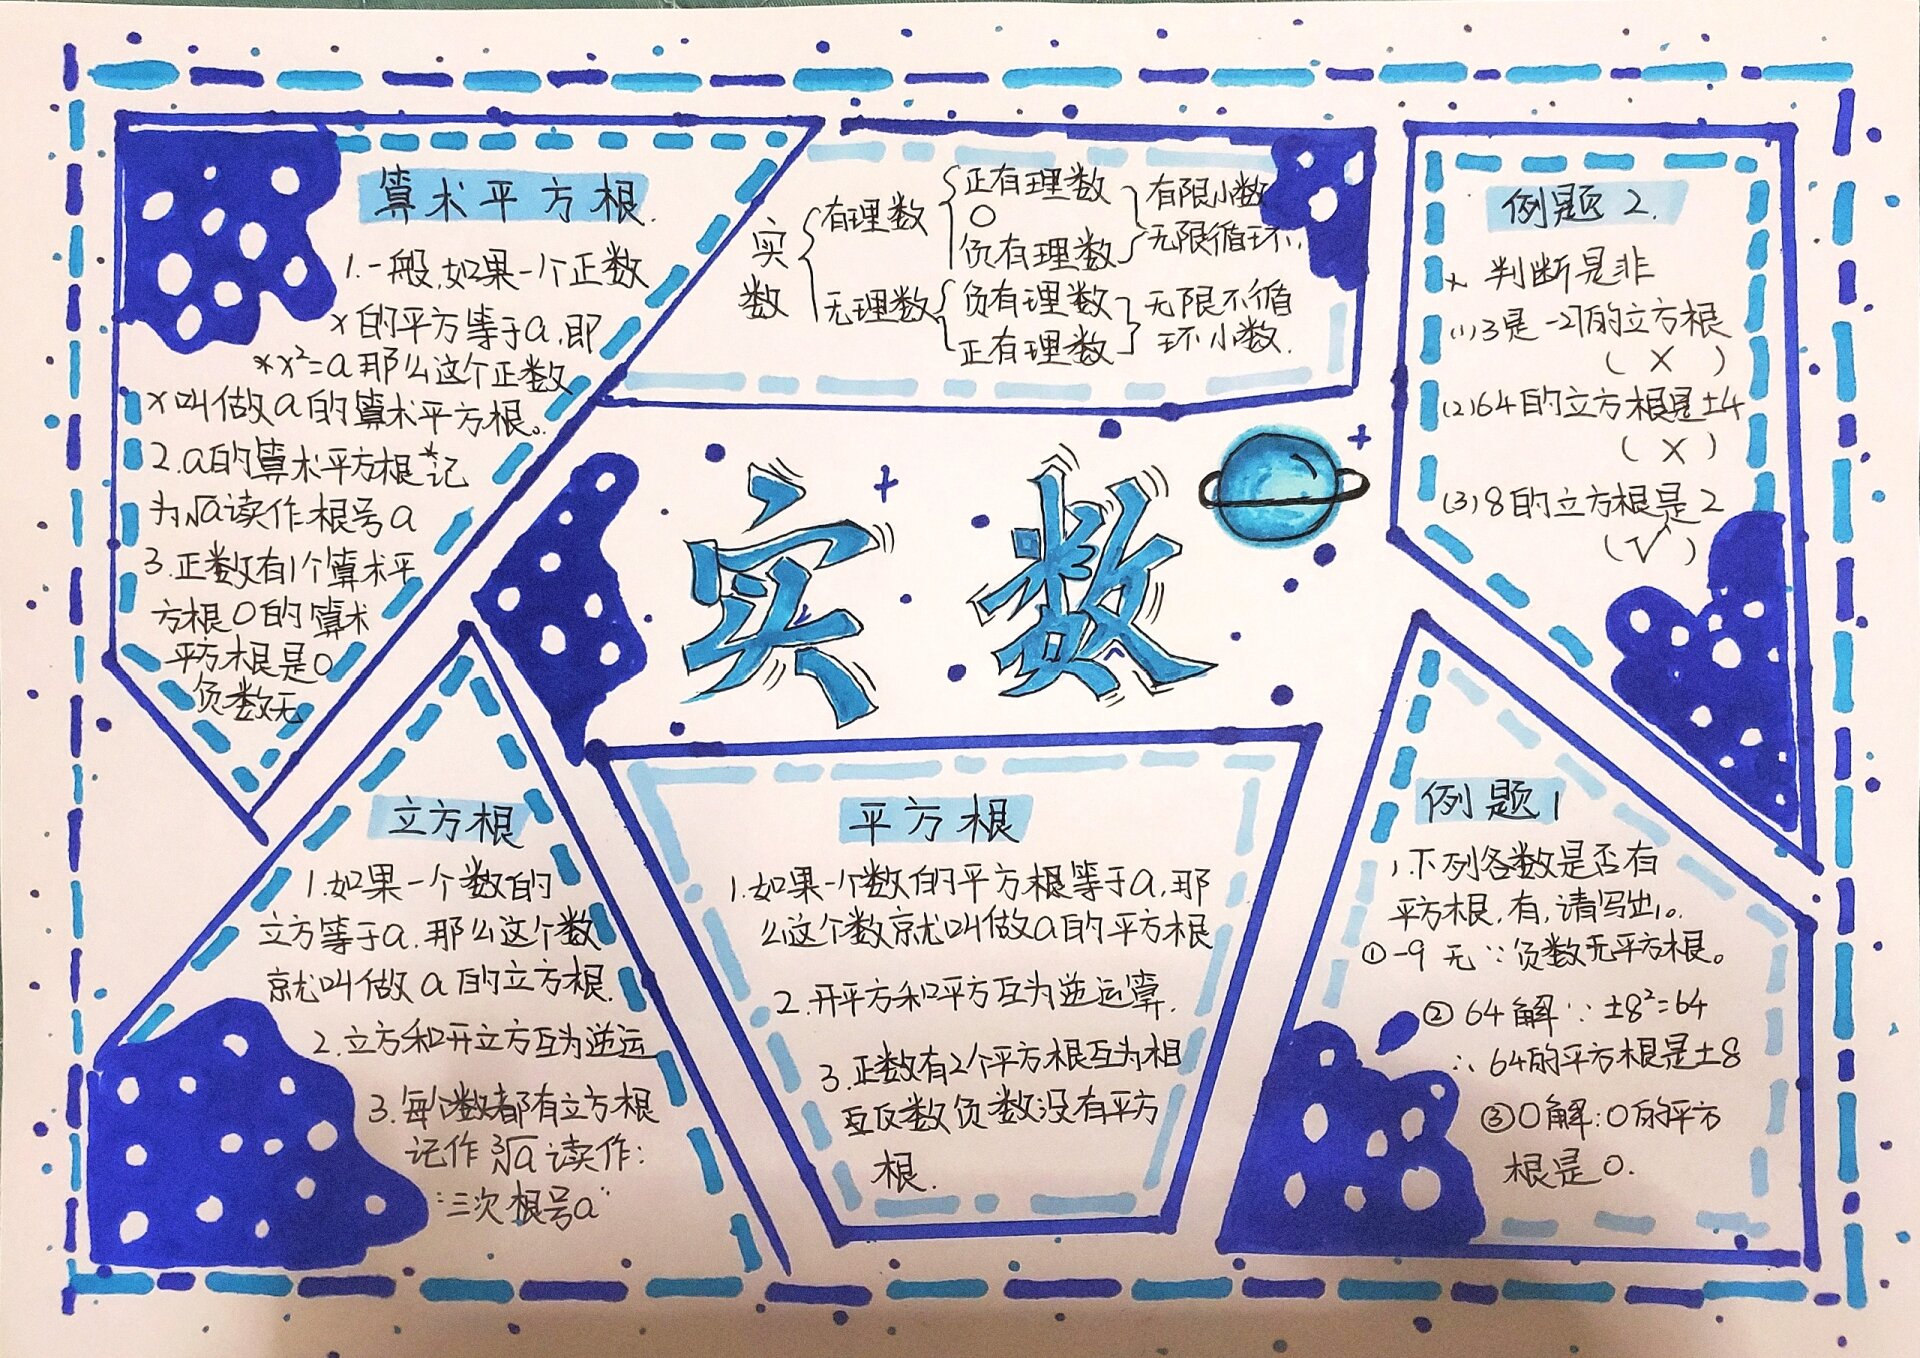 算术平方根.
1.一般,如果一个正数
x的平方等于a,即
*x²=a那么这个正数
x叫做a的算术平方根。
2.a的算术平方根*记
为√a读作:根号a
3.正数有1个算术平
方根0的算术
平方根是0
负数无
实数
有理数
正有理数
0
负有理数
有限小数
无限循环
无理数
负有理数
正有理数
无限不循
环小数.
例题2.
x 判断是非
(1)3是-27的立方根
(×)
(2)64的立方根是±4
(×)
(3)8的立方根是2
(√)
实数
立方根
1.如果一个数的
立方等于a,那么这个数
就叫做a的立方根.
2.立方和开立方互为逆运
3.每个数都有立方根
记作³√a读作:
"三次根号a"
平方根
1.如果一个数的平方根等于a,那
么这个数就叫做a的平方根
2.开平方和平方互为逆运算.
3.正数有2个平方根互为相
互反数负数没有平方
根.
例题1
1.下列各数是否有
平方根,有,请写出。
①-9 无∵负数无平方根。
②64解∵±8²=64
∴64的平方根是±8
③0解:0的平方
根是0.